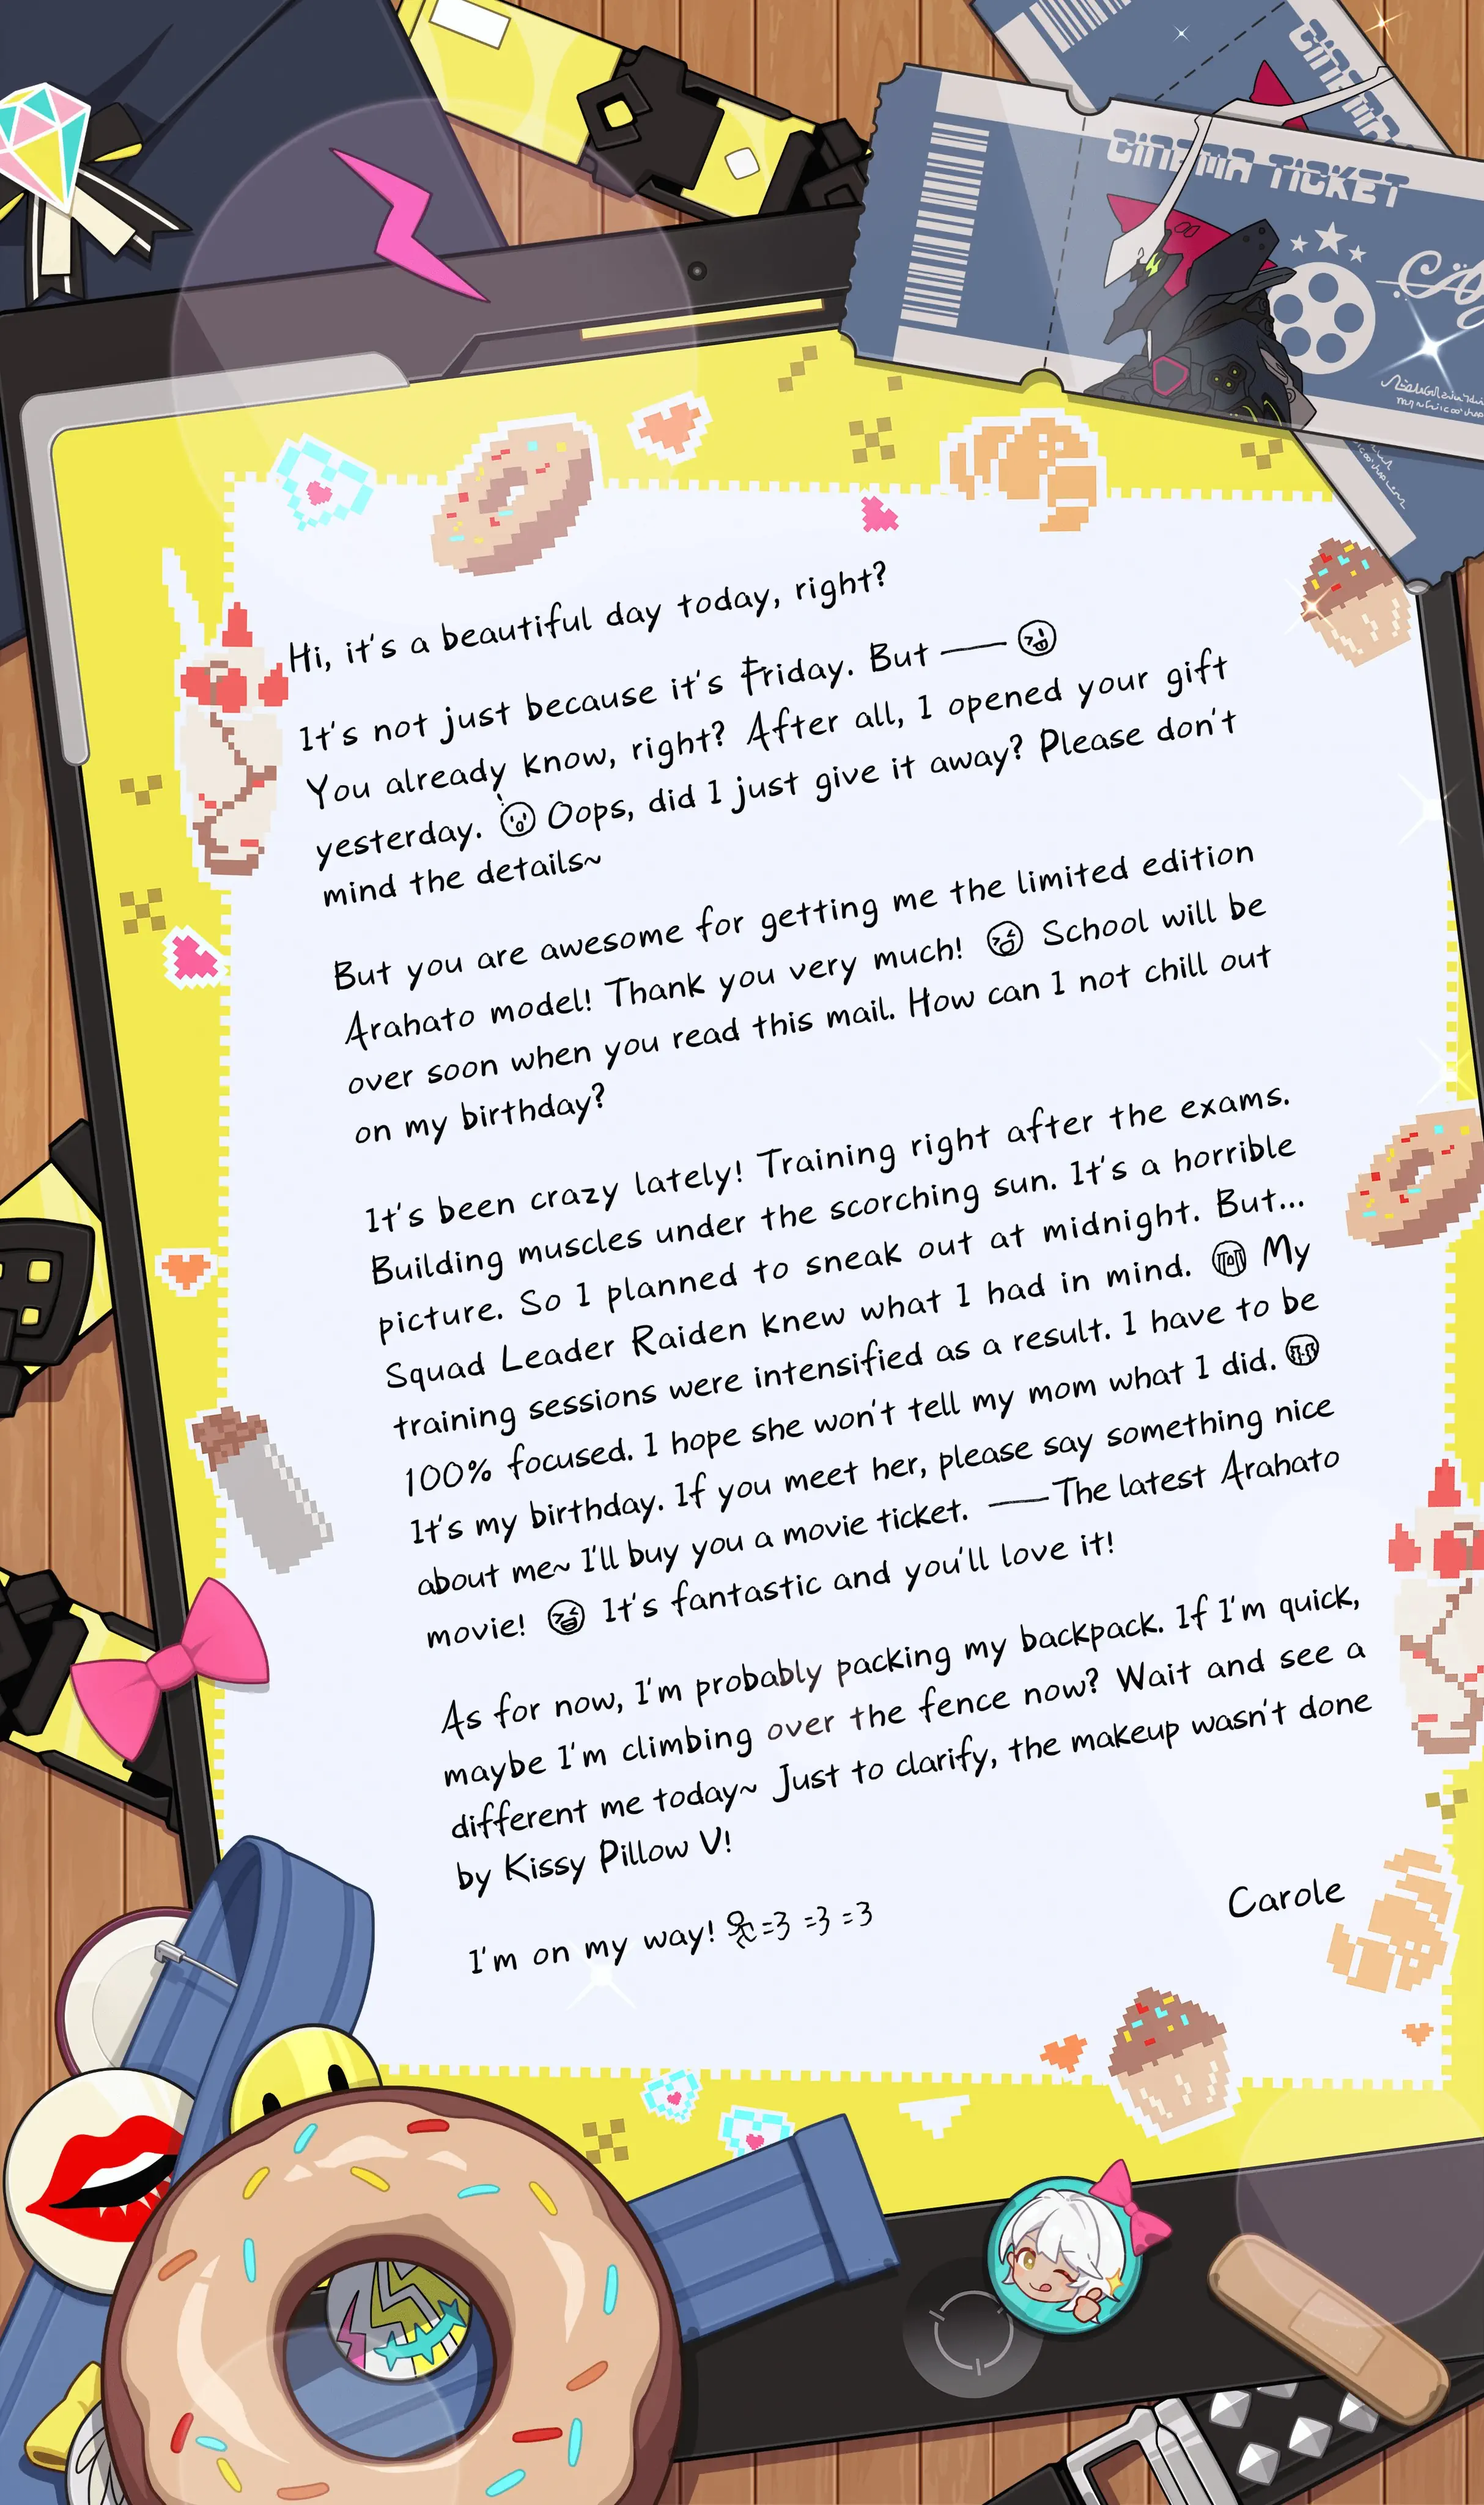 CINEMA
CINEMA TICKET
Hi, it's a beautiful day today, right?
It's not just because it's Friday. But ——
You already know, right? After all, I opened your gift
yesterday. Oops, did I just give it away? Please don't
mind the details~
But you are awesome for getting me the limited edition
Arahato model! Thank you very much! School will be
over soon when you read this mail. How can I not chill out
on my birthday?
It's been crazy lately! Training right after the exams.
Building muscles under the scorching sun. It's a horrible
picture. So I planned to sneak out at midnight. But...
Squad Leader Raiden knew what I had in mind. My
training sessions were intensified as a result. I have to be
100% focused. I hope she won't tell my mom what I did.
It's my birthday. If you meet her, please say something nice
about me~ I'll buy you a movie ticket. ——The latest Arahato
movie! It's fantastic and you'll love it!
As for now, I'm probably packing my backpack. If I'm quick,
maybe I'm climbing over the fence now? Wait and see a
different me today~ Just to clarify, the makeup wasn't done
by Kissy Pillow V!
I'm on my way! =3 =3 =3
Carole